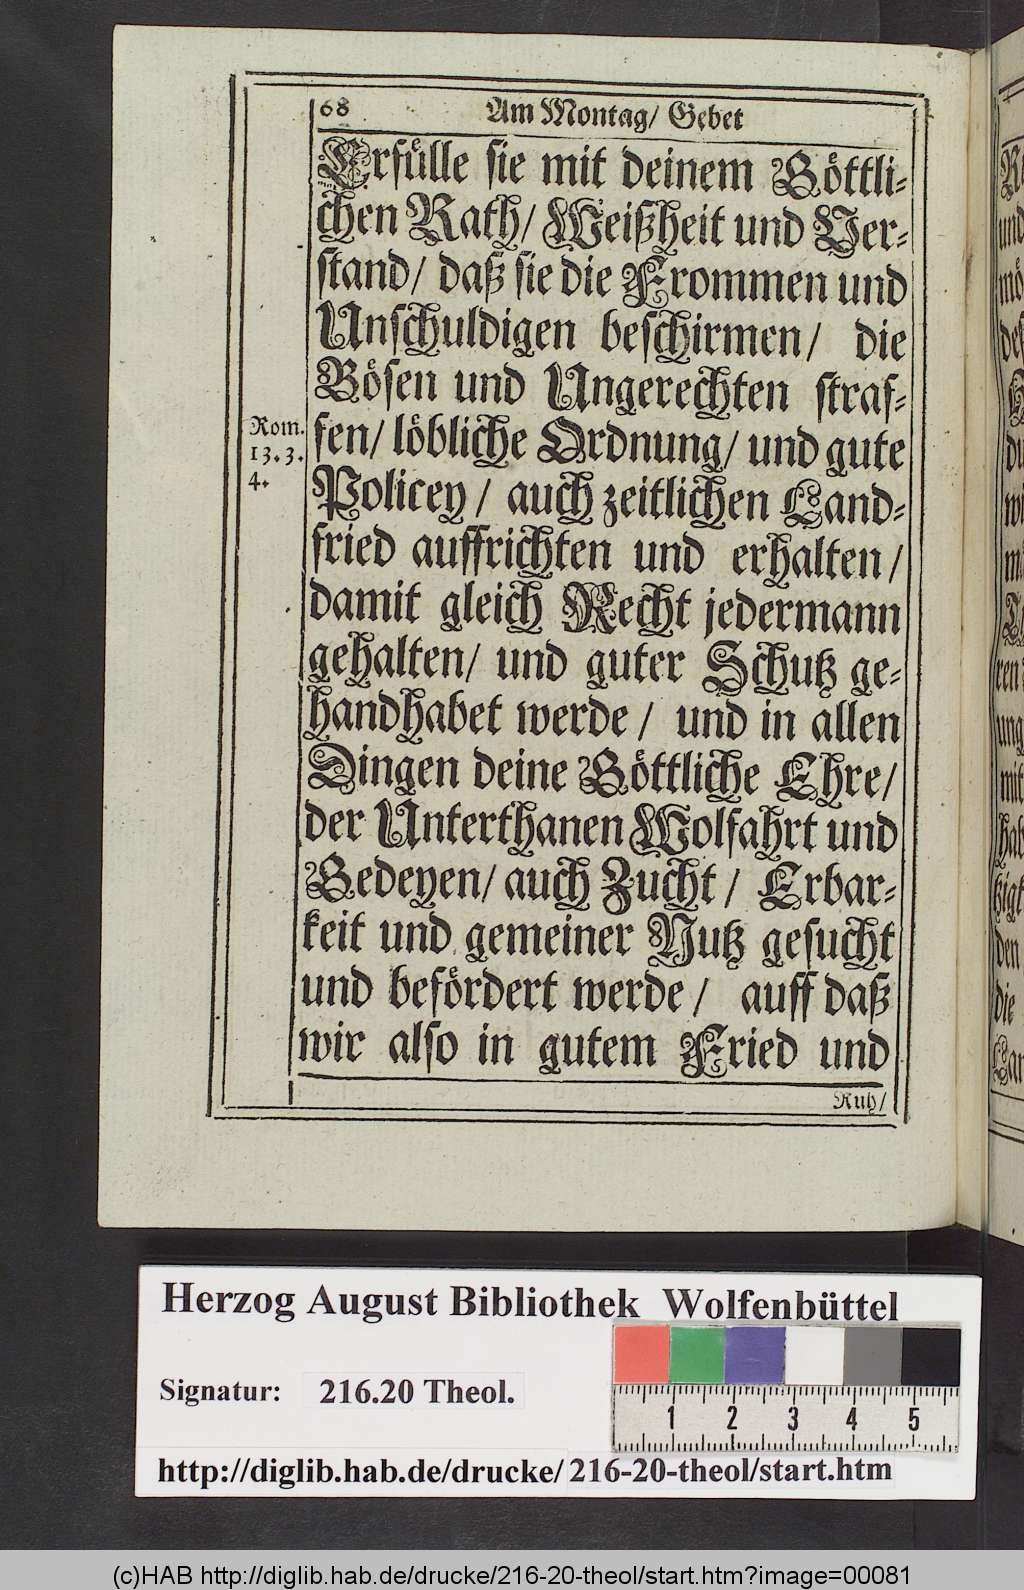 68 Am Montag/ Gebet
Erfülle sie mit deinem Göttli-
chen Rath/ Weißheit und Ver-
stand/ daß sie die Frommen und
Unschuldigen beschirmen/ die
Bösen und Ungerechten straf-
fen/ löbliche Ordnung/ und gute
Policey/ auch zeitlichen Land-
fried auffrichten und erhalten/
damit gleich Recht jedermann
gehalten/ und guter Schutz ge-
handhabet werde/ und in allen
Dingen deine Göttliche Ehre/
der Unterthanen Wolfahrt und
Gedeyen/ auch Zucht/ Erbar-
keit und gemeiner Nutz gesucht
und befördert werde/ auff daß
wir also in gutem Fried und
Ruh/
Rom.
13. 3.
4.
Herzog August Bibliothek Wolfenbüttel
Signatur: 216.20 Theol.
1 2 3 4 5
http://diglib.hab.de/drucke/216-20-theol/start.htm
(c)HAB http://diglib.hab.de/drucke/216-20-theol/start.htm?image=00081